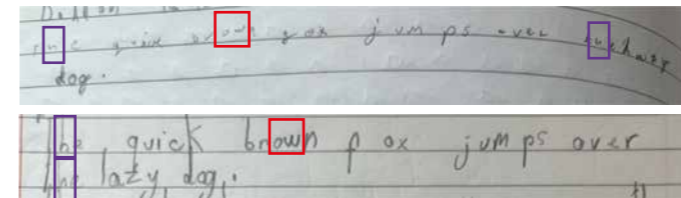 the quick brown fox jumps over the lazy
dog.
The quick brown fox jumps over
the lazy dog.